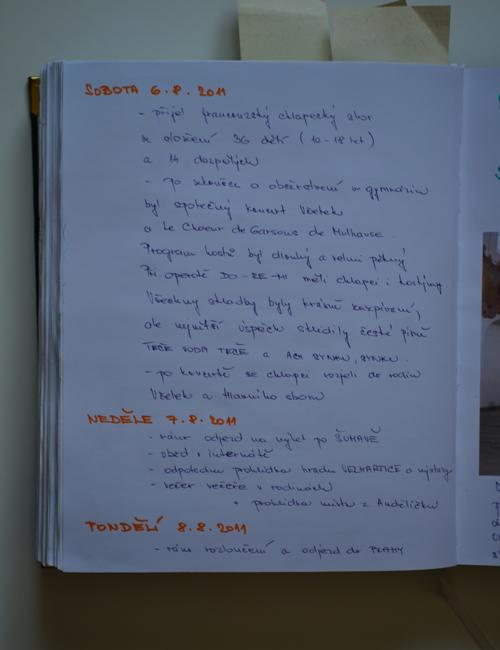 SOBOTA 6.8.2011
- přijel francouzský chlapecký sbor
ve složení 36 dětí (10-18 let)
a 14 dospělých
- po zkoušce a občerstvení v gymnáziu
byl společný koncert Včelek
a Le Choeur de Garsons de Mulhouse.
Program hostů byl dlouhý a velmi pěkný
Při operetě DO-RE-MI měli chlapci i kostýmy.
Všechny skladby byly krásně zazpívané,
ale největší úspěch sklidily české písně
TEČE VODA TEČE a ACH SYNKU, SYNKU.
- po koncertě se chlapci rozjeli do rodin
Včelek a Hlavního sboru
NEDĚLE 7.8.2011
- ráno odjezd na výlet po ŠUMAVĚ
- oběd v internátě
- odpoledne prohlídka hradu VELHARTICE a
- večer večeře v rodinách
+ prohlídka města z Andělíčku
PONDĚLÍ 8.8.2011
- ráno rozloučení a odjezd do PRAHY